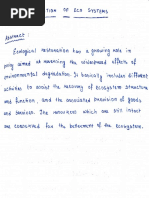 TION OF ECO SYSTEMS
Abstract :
Ecological restoration has a growing role in
policy aimed at reversing the widespread effects of
environmental degradation. It basically includes different
activities to assist the recovery of Ecosystem structure
and function, and the associated provision of goods
and services. The resources which are still intact
are conserved for the betterment of the ecosystem.